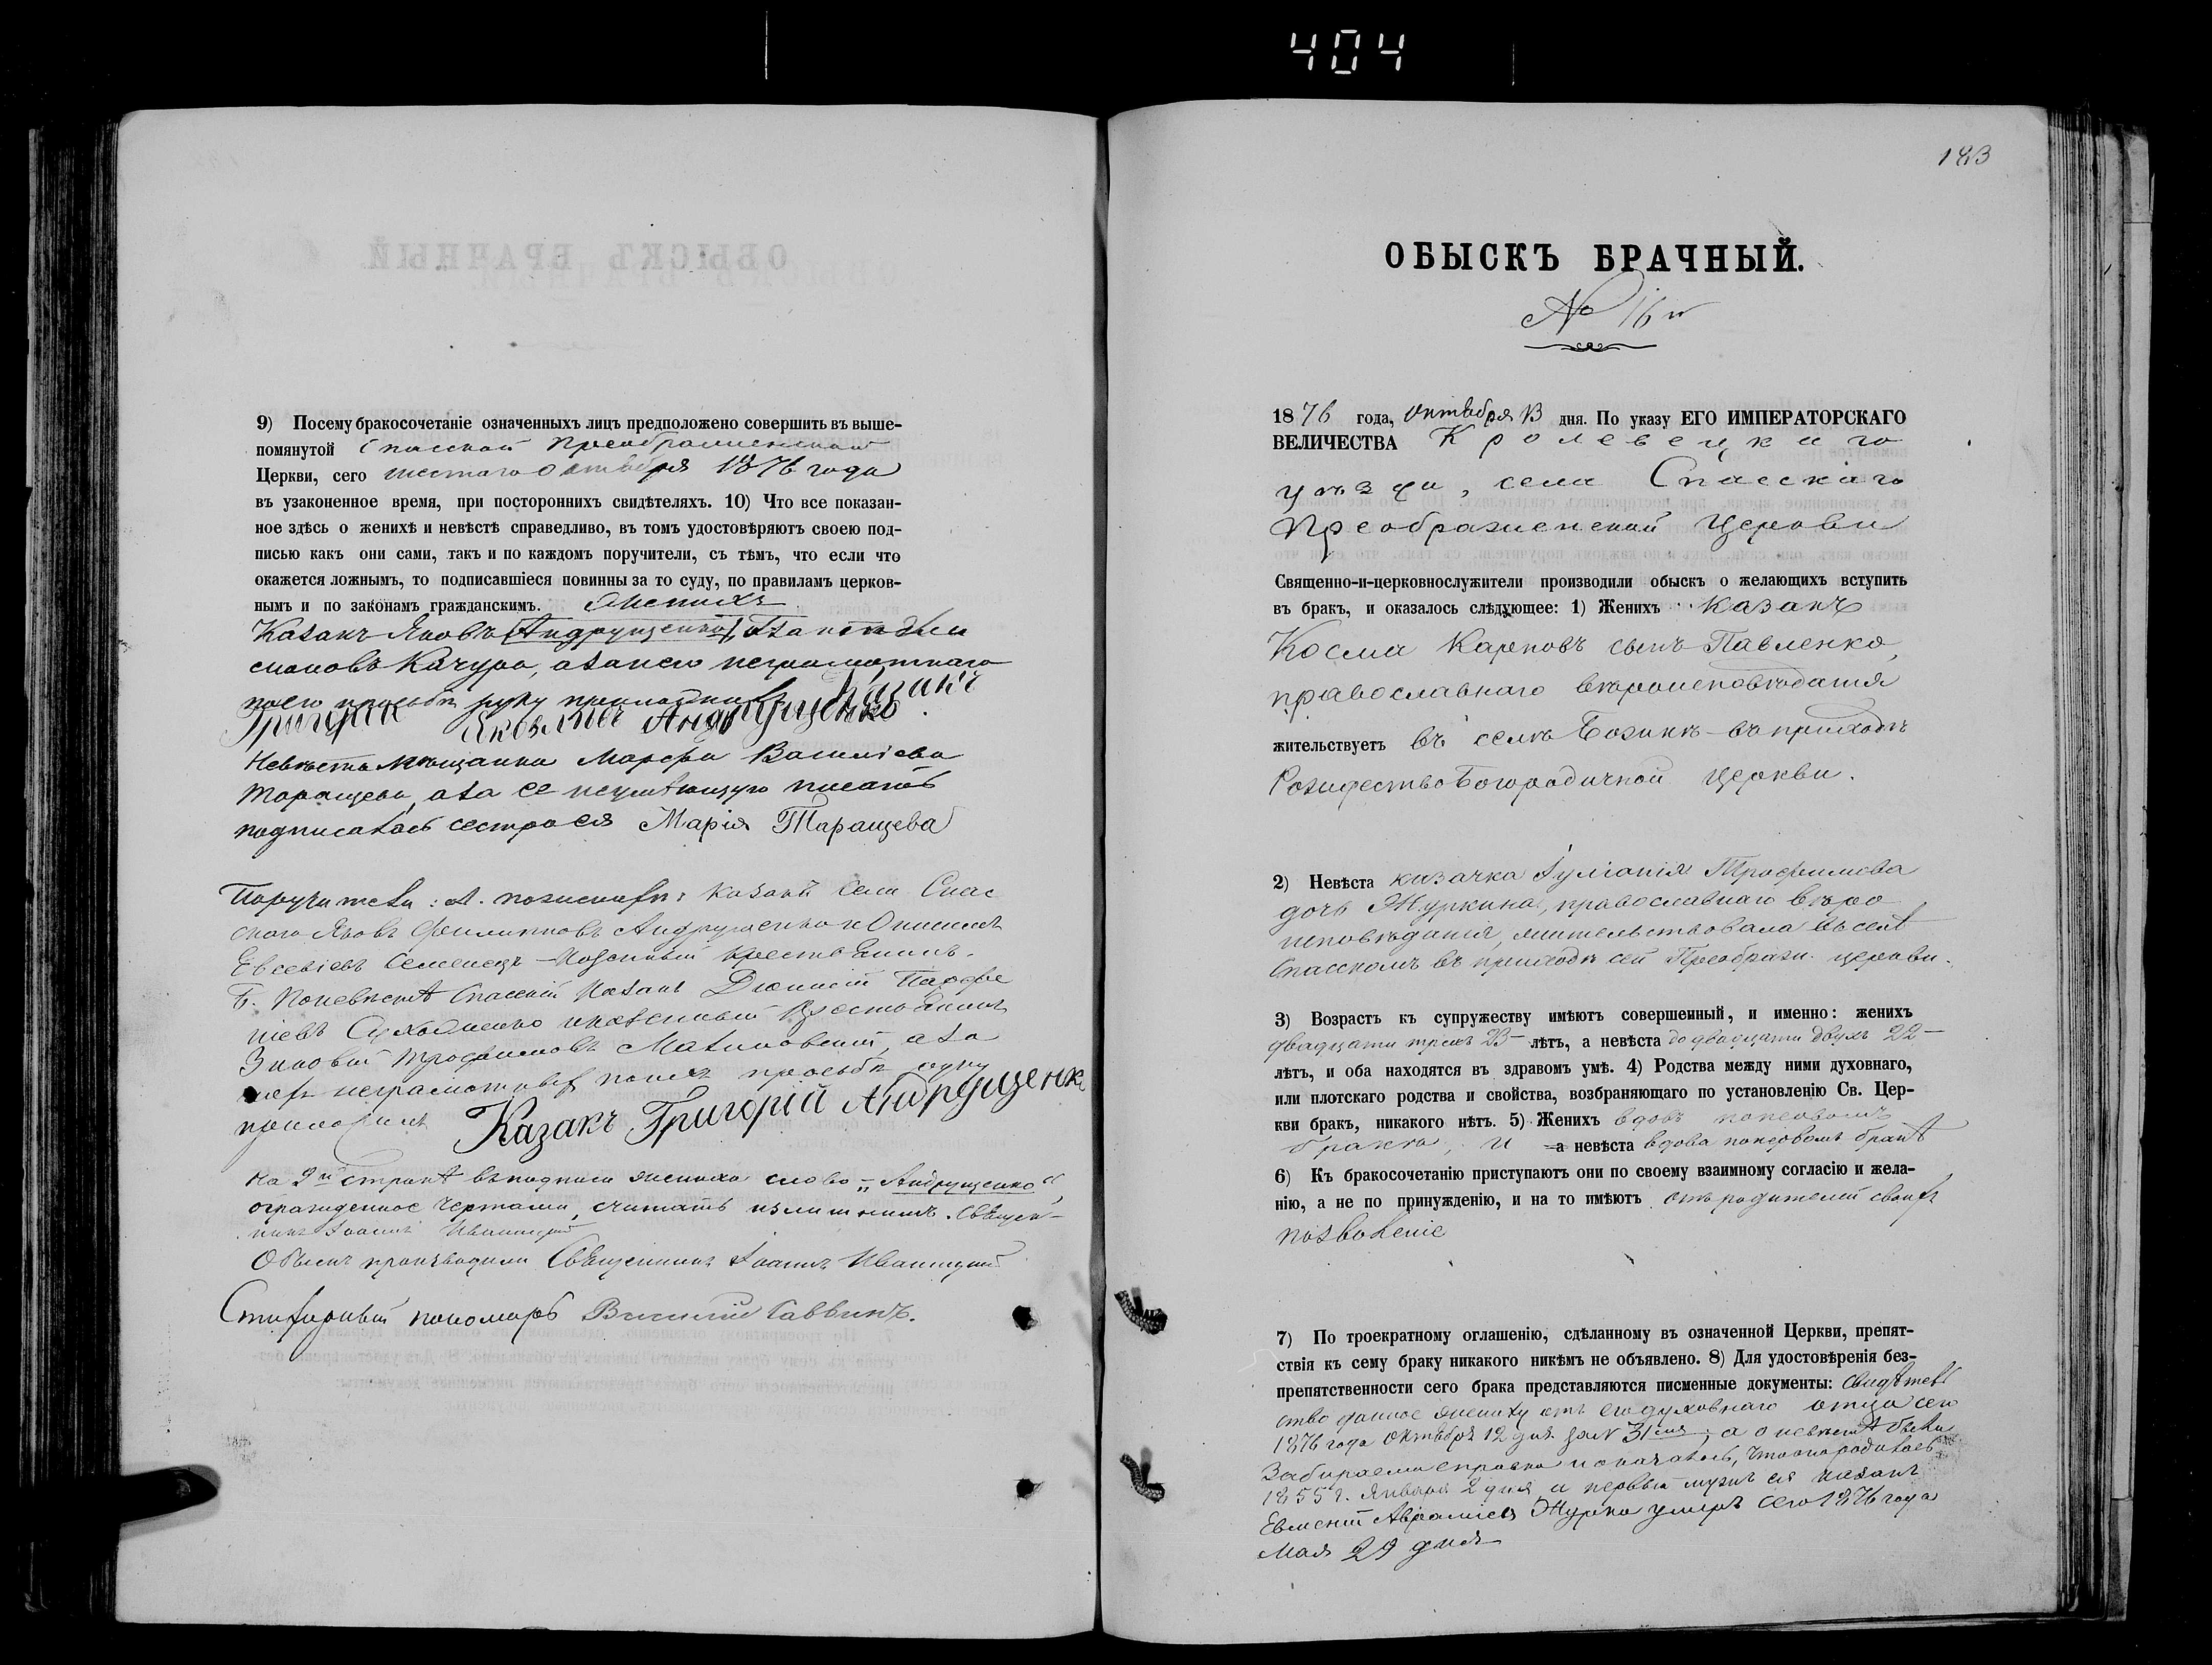 404
9) Посему бракосочетаніе означенныхъ лицъ предположено совершить въ выше-
помянутой Спасской Преображенской
Церкви, сего шестаго Октября 1876 года
въ узаконенное время, при постороннихъ свидѣтеляхъ. 10) Что все показан-
ное здѣсь о женихѣ и невѣстѣ справедливо, въ томъ удостовѣряютъ своею под-
писью какъ они сами, такъ и по каждомъ поручители, съ тѣмъ, что если что
окажется ложнымъ, то подписавшіеся повинны за то суду, по правиламъ церков-
нымъ и по законамъ гражданскимъ. Женихъ
Казакъ Яковъ [Андрущенко]
Качура, а за него неграмотнаго
по его прозьбѣ руку приложилъ Казакъ
Григорій Яковлевъ Андрущенко.
Невѣста мѣщанка Марфа Василіева
Таращева, а за ее неумѣющую писать
подписалась сестра ея Марія Таращева
Поручители: А. по женихѣ: казакъ села Спас
скаго Яковъ Филипповъ Андрущенко и Онисимъ
Евсевіевъ Семенецъ крестьянинъ.
Б. По невѣстѣ Спасскій казакъ Діонисій Парфе
ніевъ крестьянинъ
Зиновій Трофимовъ Малиновскій, а за
ихъ неграмотныхъ по ихъ прозьбѣ руку
приложилъ Казакъ Григорій Андрущенко
На 2й странѣ въ подписи жениха слово „Андрущенко“,
огражденное чертами, считать излишнимъ. Священ-
никъ Іоаннъ Иваницкій
Обыскъ производили Священникъ Іоаннъ Иваницкій
Стихарный пономарь Василій Саввинъ.
183
ОБЫСКЪ БРАЧНЫЙ.
№ 16й
1876 года, Октября 13 дня. По указу ЕГО ИМПЕРАТОРСКАГО
ВЕЛИЧЕСТВА Кролевецкаго
уѣзда, села Спасскаго
Преображенской Церкви
Священно-и-церковнослужители производили обыскъ о желающихъ вступить
въ бракъ, и оказалось слѣдующее: 1) Женихъ казакъ
Косма Карповъ сынъ Павленко,
православнаго вѣроисповѣданія
жительствуетъ въ селѣ Божикѣ въ приходѣ
Рождество Богородичной Церкви.
2) Невѣста казачка Іуліанія Трофимова
дочь Журкина, православнаго вѣро
исповѣданія, жительствовала въ селѣ
Спасскомъ въ приходѣ сей Преображ. церкви.
3) Возрастъ къ супружеству имѣютъ совершенный, и именно: женихъ
двадцати трехъ 23 лѣтъ, а невѣста до двадцати двухъ 22
лѣтъ, и оба находятся въ здравомъ умѣ. 4) Родства между ними духовнаго,
или плотскаго родства и свойства, возбраняющаго по установленію Св. Цер-
кви бракъ, никакого нѣтъ. 5) Женихъ вдовъ по первомъ
бракѣ, и а невѣста вдова по первомъ бракѣ
6) Къ бракосочетанію приступаютъ они по своему взаимному согласію и жела-
нію, а не по принужденію, и на то имѣютъ отъ родителей своихъ
позволеніе
7) По троекратному оглашенію, сдѣланному въ означенной Церкви, препят-
ствія къ сему браку никакого никѣмъ не объявлено. 8) Для удостовѣренія без-
препятственности сего брака представляются писменные документы: свидѣтель
ство данное жениху отъ его духовнаго отца сего
1876 года Октября 12 дня за № 31, а о невѣстѣ были
забираемы справки и оказалось, что она родилась
1855 г. Января 2 дня а первый мужъ ея казакъ
Евменій Авраміевъ Журко умеръ сего 1876 года
Мая 29 дня